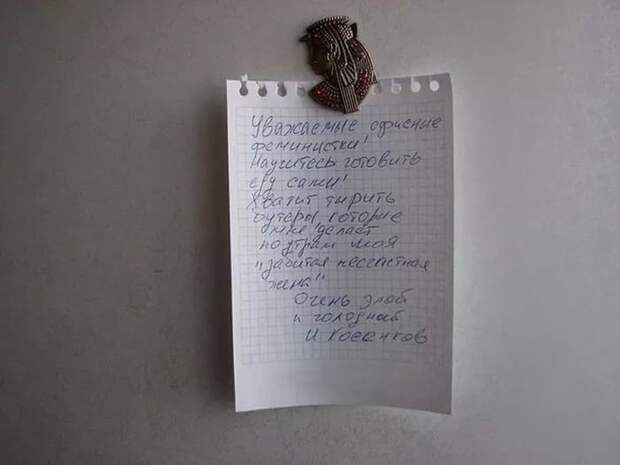 Уважаемые офисние
феминистки!
Научитесь готовить
еду сами!
Хватит тырить
бутеры, которые
мне делает
по утрам моя
"забитая несчастная
жена!"
Очень злой
и голодный
И